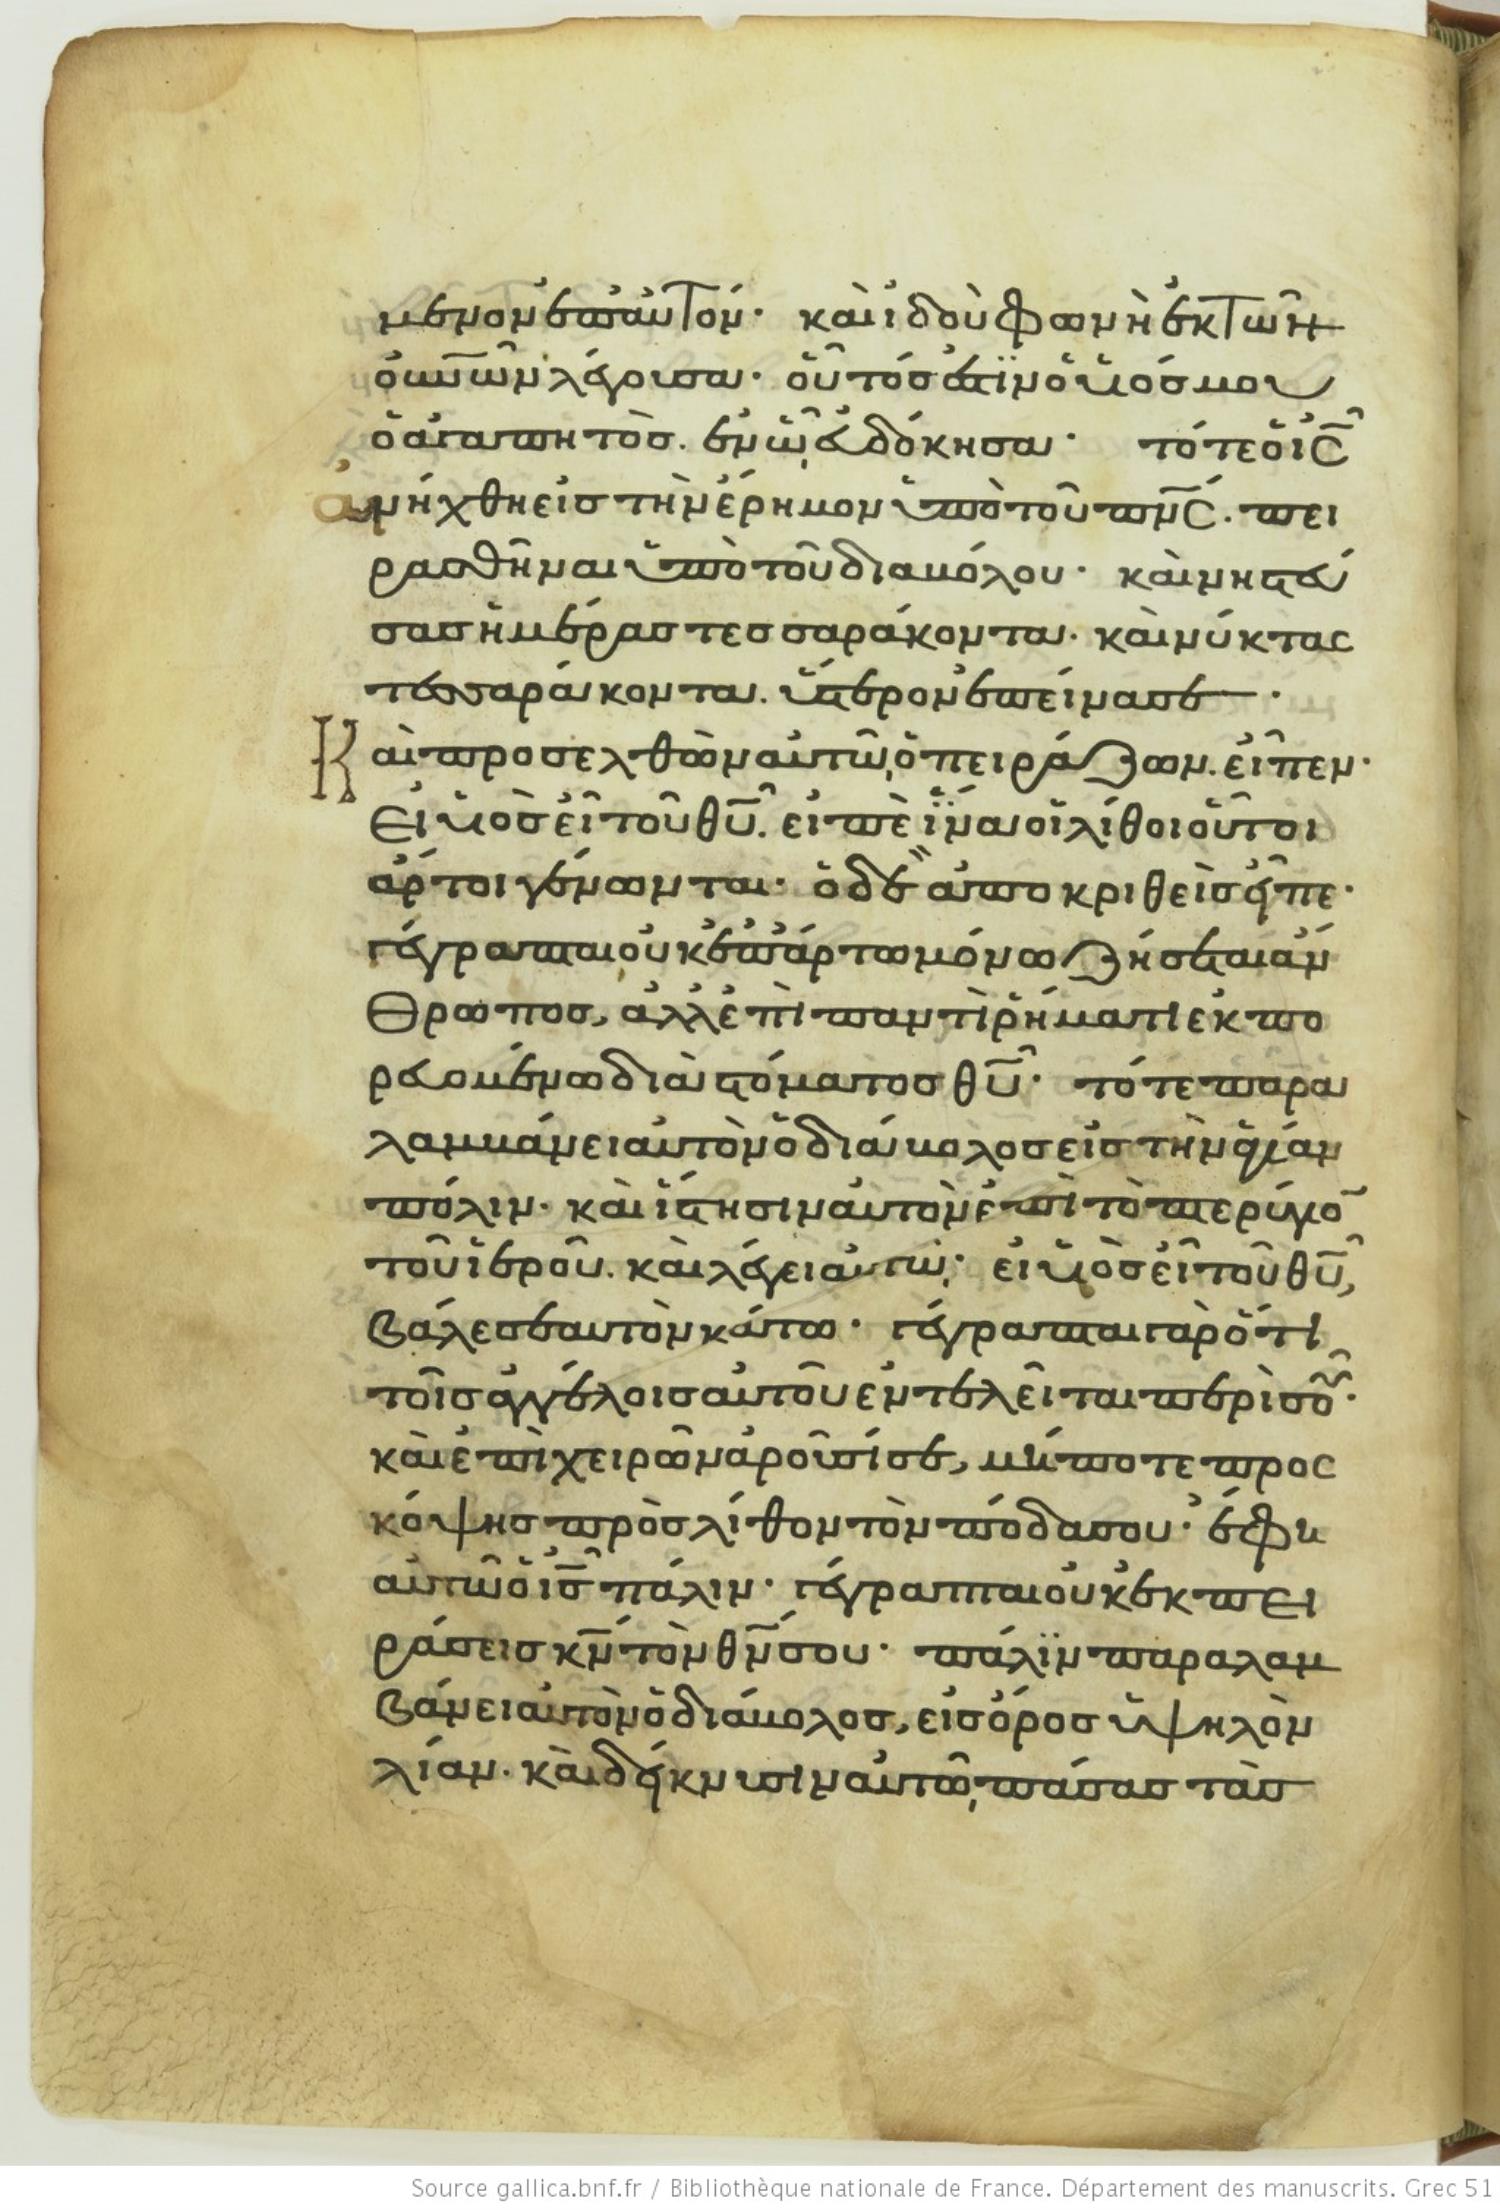 μενον ἐπ' αὐτόν· καὶ ἰδοὺ φωνὴ ἐκ τῶν
οὐν͞ων λέγουσα· οὗτός ἐστιν ὁ υἱός μου
ὁ ἀγαπητὸς. ἐν ᾧ εὐδόκησα· τότε ὁ ι͞ς
ἀνήχθη εἰς τὴν ἔρημον ὑπὸ τοῦ πν͞ς. πει
ρασθῆναι ὑπὸ τοῦ διαβόλου· καὶ νηστεύ
σας ἡμέρας τεσσαράκοντα. καὶ νύκτας
τεσσαράκοντα. ὕστερον ἐπείνασε·
Καὶ προσελθὼν αὐτῶ, ὁ πειράζων. εἶπεν·
Εἰ υἱὸς εἶ τοῦ θ͞υ. εἰπὲ ἵνα οἱ λίθοι οὗτοι
ἄρτοι γένωνται· ὁ δὲ ἀποκριθεὶς εἶπε·
γέγραπται οὐκ ἐπ' ἄρτω μόνω ζήσεται ἄν
θρωπος, ἀλλ' ἐπὶ παντὶ ῥήματι ἐκπο
ρευομένω διὰ στόματος θ͞υ· τότε παρα
λαμβάνει αὐτὸν ὁ διάβολος εἰς τὴν ἁγίαν
πόλιν· καὶ ἵστησιν αὐτὸν ἐπὶ τὸ πτερύγιο͞
τοῦ ἱεροῦ. καὶ λέγει αὐτῶ· εἰ υἱὸς εἶ τοῦ θ͞υ,
βάλε σεαυτὸν κάτω· γέγραπται γὰρ ὅτι
τοῖς ἀγγέλοις αὐτοῦ ἐντελεῖται περὶ σοῦ·
καὶ ἐπὶ χειρῶν ἀροῦσί σε, μήποτε προς
κόψης πρὸς λίθον τὸν πόδα σου· ἔφη
αὐτῶ ὁ ι͞ς πάλιν· γέγραπται οὐκ ἐκπει
ράσεις κ͞ν τὸν θ͞ν σου· πάλϊν παραλαμ
βάνει αὐτὸν ὁ διάβολος, εἰς ὄρος ὑψηλὸν
λίαν· καὶ δείκνυσιν αὐτῶ, πάσας τὰς
Source gallica.bnf.fr / Bibliothèque nationale de France. Département des manuscrits. Grec 51